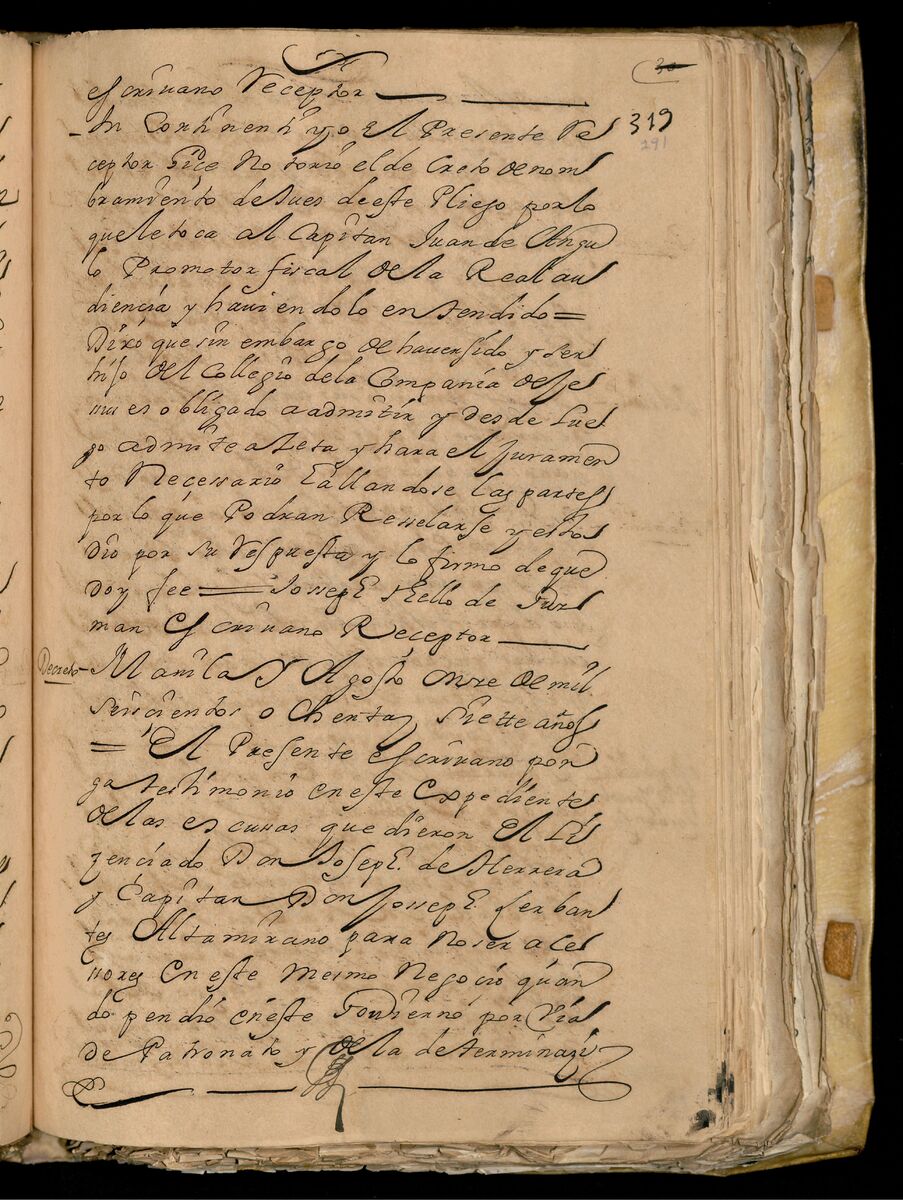 escriuano Receptor
In Continenti yo El Presente Re
ceptor hiçe Notorio el de Creto de nom
bramiento de Jues de este Pliego por lo
que le toca al Capitan Juan de Angu
lo Promotor fiscal de la Real au
diencia y hauiendolo entendido =
Dixo que sin embargo de hauer sido y ser
hijo del Collegio de la Compania de Je
sus es obligado a admitir y desde Lue
go admite a Leta y hara el juramen
to Necessario hallandose las partes
por lo que Podran Resselarse y esto
Dio por su Respuesta y lo firmo de que
Doy fee = Josseph tello de Gus
man Escriuano Receptor
Decreto
Manila y Agosto onse de mil
seiscientos ochenta y siette años
= El Presente escriuano pon
ga testimonio en este Expediente
de las escusas que dieron El Li
zenciado Don Joseph de Herrera
y Capitan Don Josseph serban
tes Altamirano para No ser a ce
ssores En este mesmo Negocio quan
do pendio en este Gouierno por Via
de Patronato y de la determinazi
30
319
291